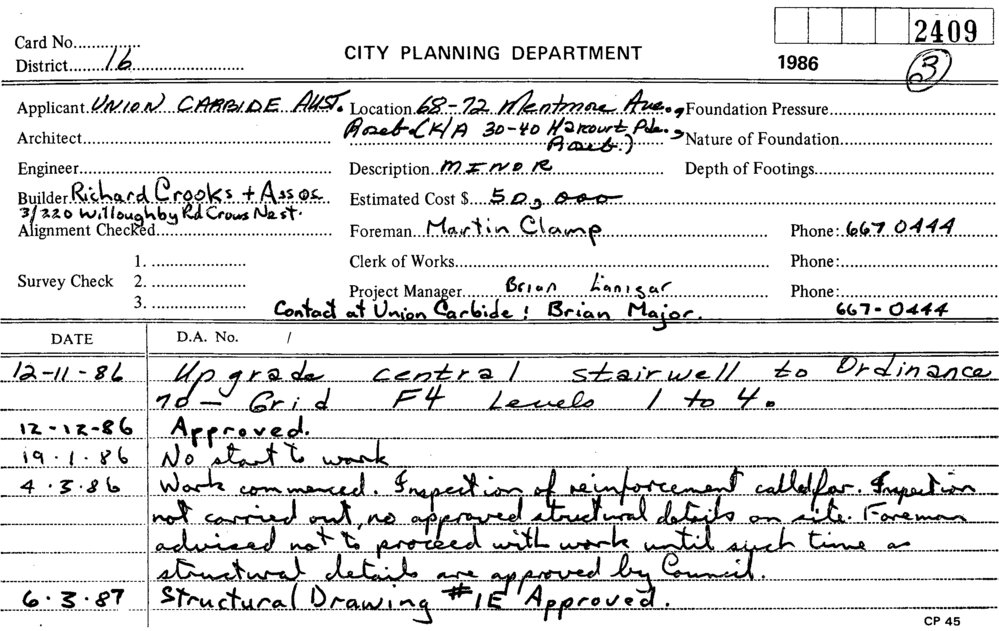 2409
Card No...............
CITY PLANNING DEPARTMENT
District.......16..........................
1986
3
Applicant. UNION CARBIDE AUST. Location. 68-72 Mentmore Ave., Foundation Pressure
Roseb. (K/A 30-40 Harcourt Pde., Roseb.)
Architect
Nature of Foundation
Engineer
Description. MINOR
Depth of Footings
Builder. Richard Crooks + Assoc
Estimated Cost $ 50,000
3/220 Willoughby Rd Crows Nest.
Alignment Checked
Foreman. Martin Clamp
Phone: 667 0444
1.
Clerk of Works
Phone:
Survey Check 2.
Project Manager Brian
Phone:
3.
Contact at Union Carbide : Brian Major. 667-0444
DATE D.A. No. /
12-11-86 Upgrade central stairwell to Ordinance
70 - Grid F4 Levels 1 to 4.
12-12-86 Approved.
19.1.86 No start to work
4.3.86 Work commenced. Inspection of reinforcement called for. Inspection
not carried out, no approved structural details on site. Foreman
advised not to proceed with work until such time as
structural details are approved by Council.
6.3.87 Structural Drawing #1E Approved.
CP 45